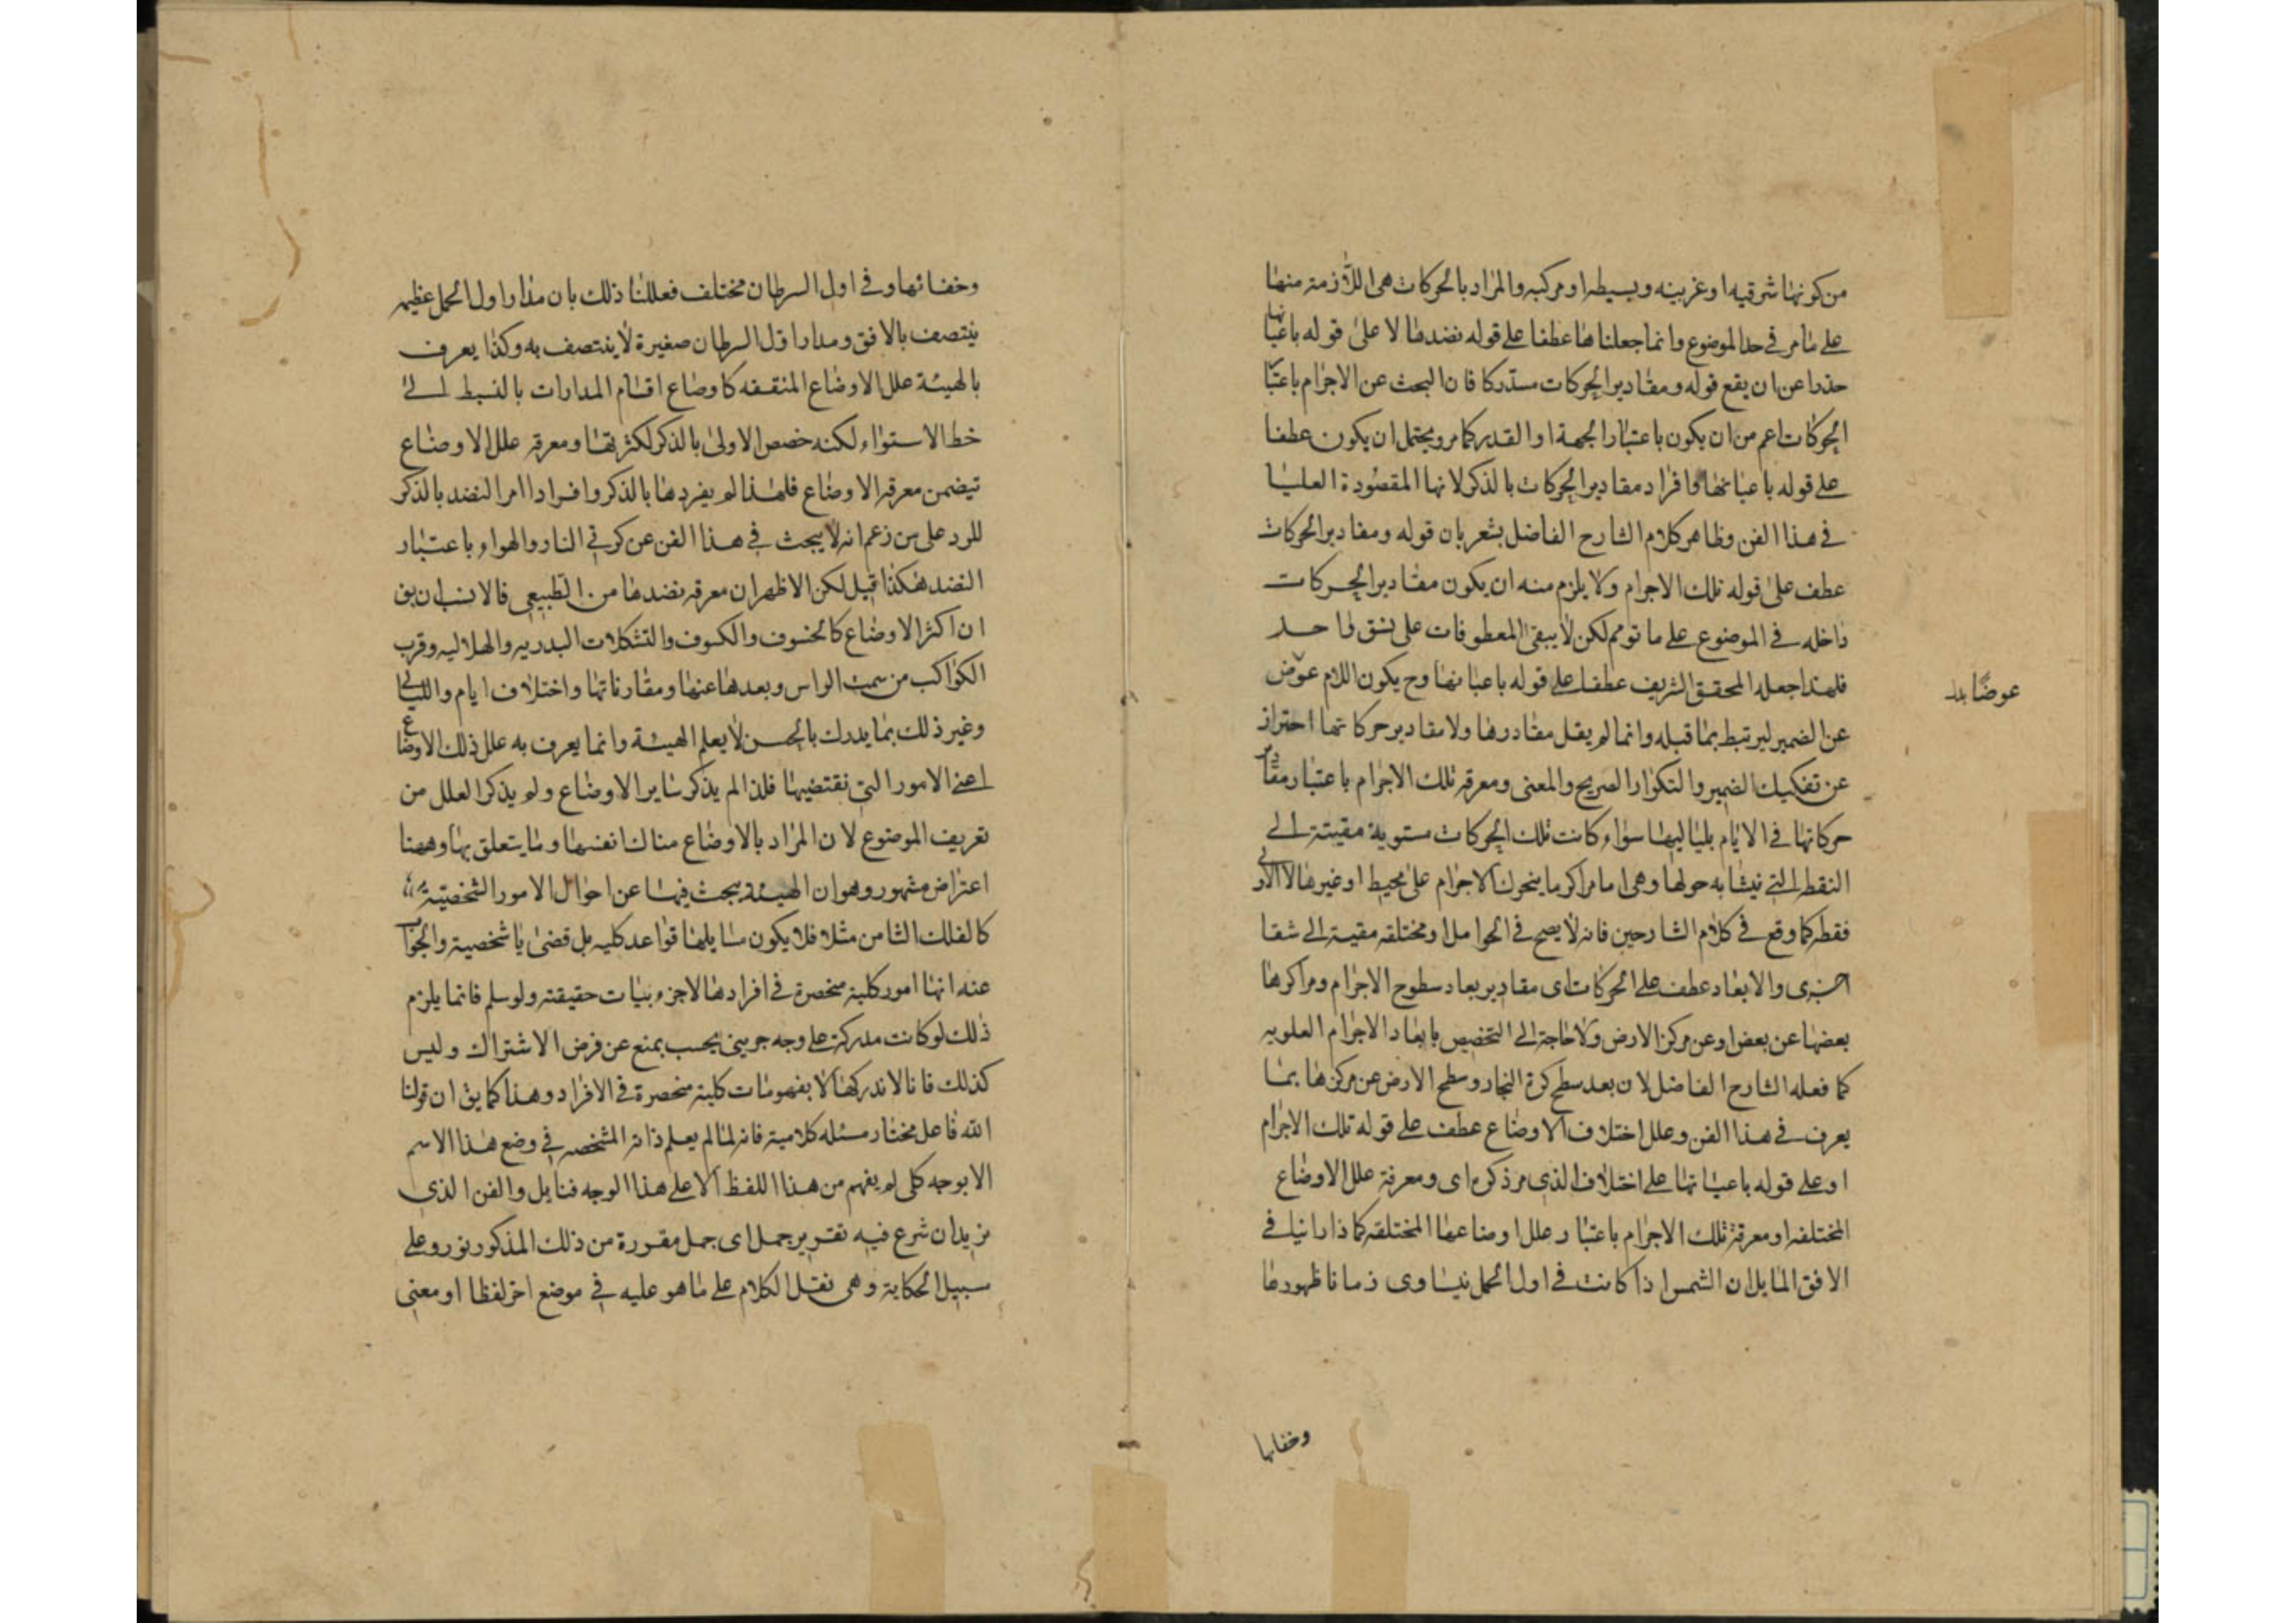 من كونها شرقيه او غربيته وبسيطه او مركبه والمراد بالحركات هى اللازمة منها
على ما مر فى حد الموضوع وانما جعلنا ها عطفا على قوله نضدها لا على قوله باعتبارها
حذرا عن ان يقع قوله ومقادير الحركات مستدركا فان البحث عن الاجرام باعتبار
الحركات اعم من ان يكون باعتبار الجهة او القدر كما مر ويحتمل ان يكون عطفا
على قوله باعتبارها وافراد مقادير الحركات بالذكر لانها المقصودة العليا
فى هذا الفن وظاهر كلام الشارح الفاضل يشعر بان قوله ومقادير الحركات
عطف على قوله تلك الاجرام ولا يلزم منه ان يكون مقادير الحركات
داخله فى الموضوع على ما توهم لكن لا يبقى المعطوفات على نسق واحد
فلهذا جعله المحقق الشريف عطفا على قوله باعتبارها وح يكون اللام عوض
عوضا بد
عن الضمير ليرتبط بما قبله وانما لم يقل مقادرها ولا مقادير حركاتها احتراز
عن تفكيك الضمير والتكرار الصريح والمعنى ومعرفه تلك الاجرام باعتبار مقادير
حركاتها فى الايام بلياليها سواء كانت تلك الحركات مستوية مقيتة الى
النقط التى يتشابه حولها وهى اما مراكز ما يتحرك الاجرام على محيط او غيرها لا الاولى
فقط كما وقع فى كلام الشارحين فانه لا يصح فى الحوامل او مختلفه مقيتة الى
اخرى والابعاد عطف على الحركات اى مقادير بعاد سطوح الاجرام ومراكزها
بعضها عن بعض او عن مركز الارض ولا حاجة الى التخصيص بابعاد الاجرام العلويه
كما فعله الشارح الفاضل لان بعد سطح كرة البخار وسطح الارض عن مركزها بما
يعرف فى هذا الفن وعلل اختلاف الاوضاع عطف على قوله تلك الاجرام
او على قوله باعتبارها على اختلاف الذى مر ذكره اى ومعرفة علل الاوضاع
المختلفه او معرفة تلك الاجرام باعتبار علل اوضاعها المختلفه كما ذا راينا فى
الافق المايل ان الشمس اذا كانت فى اول الحمل يتساوى زمانا ظهورها
وخفايها
وخفائها وفى اول السرطان مختلف فعللنا ذلك بان مدار اول الحمل عظيمه
يتنصف بالافق ومدار اول السرطان صغيرة لا ينتصف به وكذا يعرف
بالهيئة علل الاوضاع المتفقه كاوضاع اقسام المدارات بالنسبط الى
خط الاستواء لكنه خصص الاولى بالذكر لكثرتها ومعرفه علل الاوضاع
تيضمن معرفه الاوضاع فلهذا لم يفردها بالذكر وافراد امر النضد بالذكر
للرد على من زعم انه لا يبحث فى هذا الفن عن كرتى النار والهواء باعتبار
النضد هكذا قيل لكن الاظهر ان معرفه نضدها من الطبيعى فالانسب ان يق
ان اكثر الاوضاع كالخسوف والكسوف والتشكلات البدريه والهلاليه وقرب
الكواكب من سمت الراس وبعدها عنها ومقارناتها واختلاف ايام والليالى
وغير ذلك بما يدرك بالحس لا يعلم الهيئة وانما يعرف به علل ذلك الاوضاع
اعنى الامور التى نقتضيها فلذا لم يذكر ساير الاوضاع ولم يذكر العلل من
تعريف الموضوع لان المراد بالاوضاع هناك انفسها وما يتعلق بها وههنا
اعتراض مشهور وهو ان الهيئة يبحث فيها عن احوال الامور الشخصيتة
كالفلك الثامن مثلا فلا يكون مسايلها قواعد كليه بل قضايا شخصية والجواب
عنه انها امور كلية منحصرة فى افرادها لاجزء بيات حقيقته ولو سلم فانما يلزم
ذلك لو كانت مدركة على وجه جريى بحسب يمنع عن فرض الاشتراك وليس
كذلك فانا لا ندركها الا بفهومات كلية منحصرة فى الافراد وهذا كما يق ان قولنا
الله فاعل مختار مسئله كلامية فانه لما لم يعلم ذاته المشخصه فى وضع هذا الاسم
الا بوجه كلى لم يفهم من هذا اللفظ الا على هذا الوجه فتايل والفن الذى
نريد ان شرع فيه تقرير جمل اى جمل مقررة من ذلك المذكور نورد على
سبيل الحكاية وهى نقل الكلام على ما هو عليه فى موضع اخر لفظا او معنى